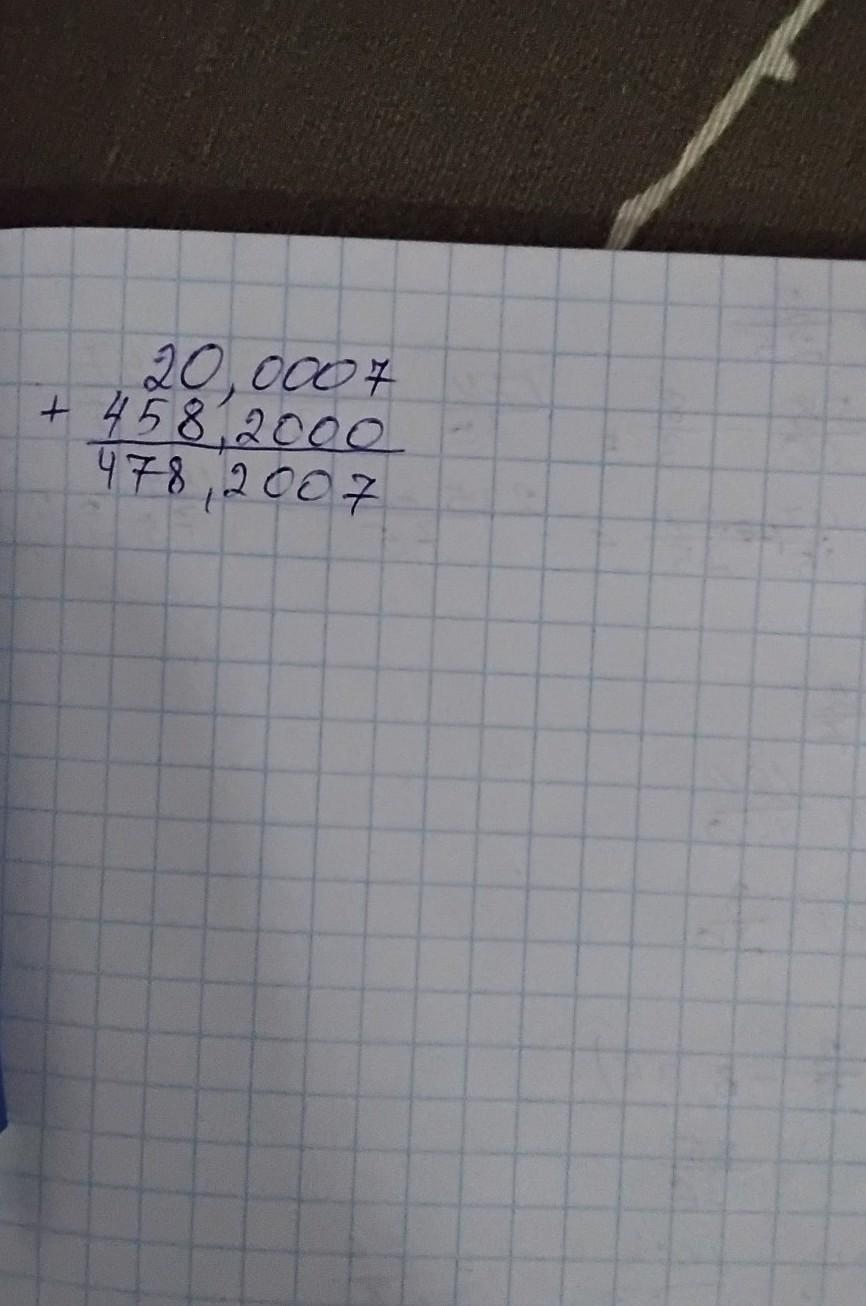 20,0007
+ 458,2000
478,2007